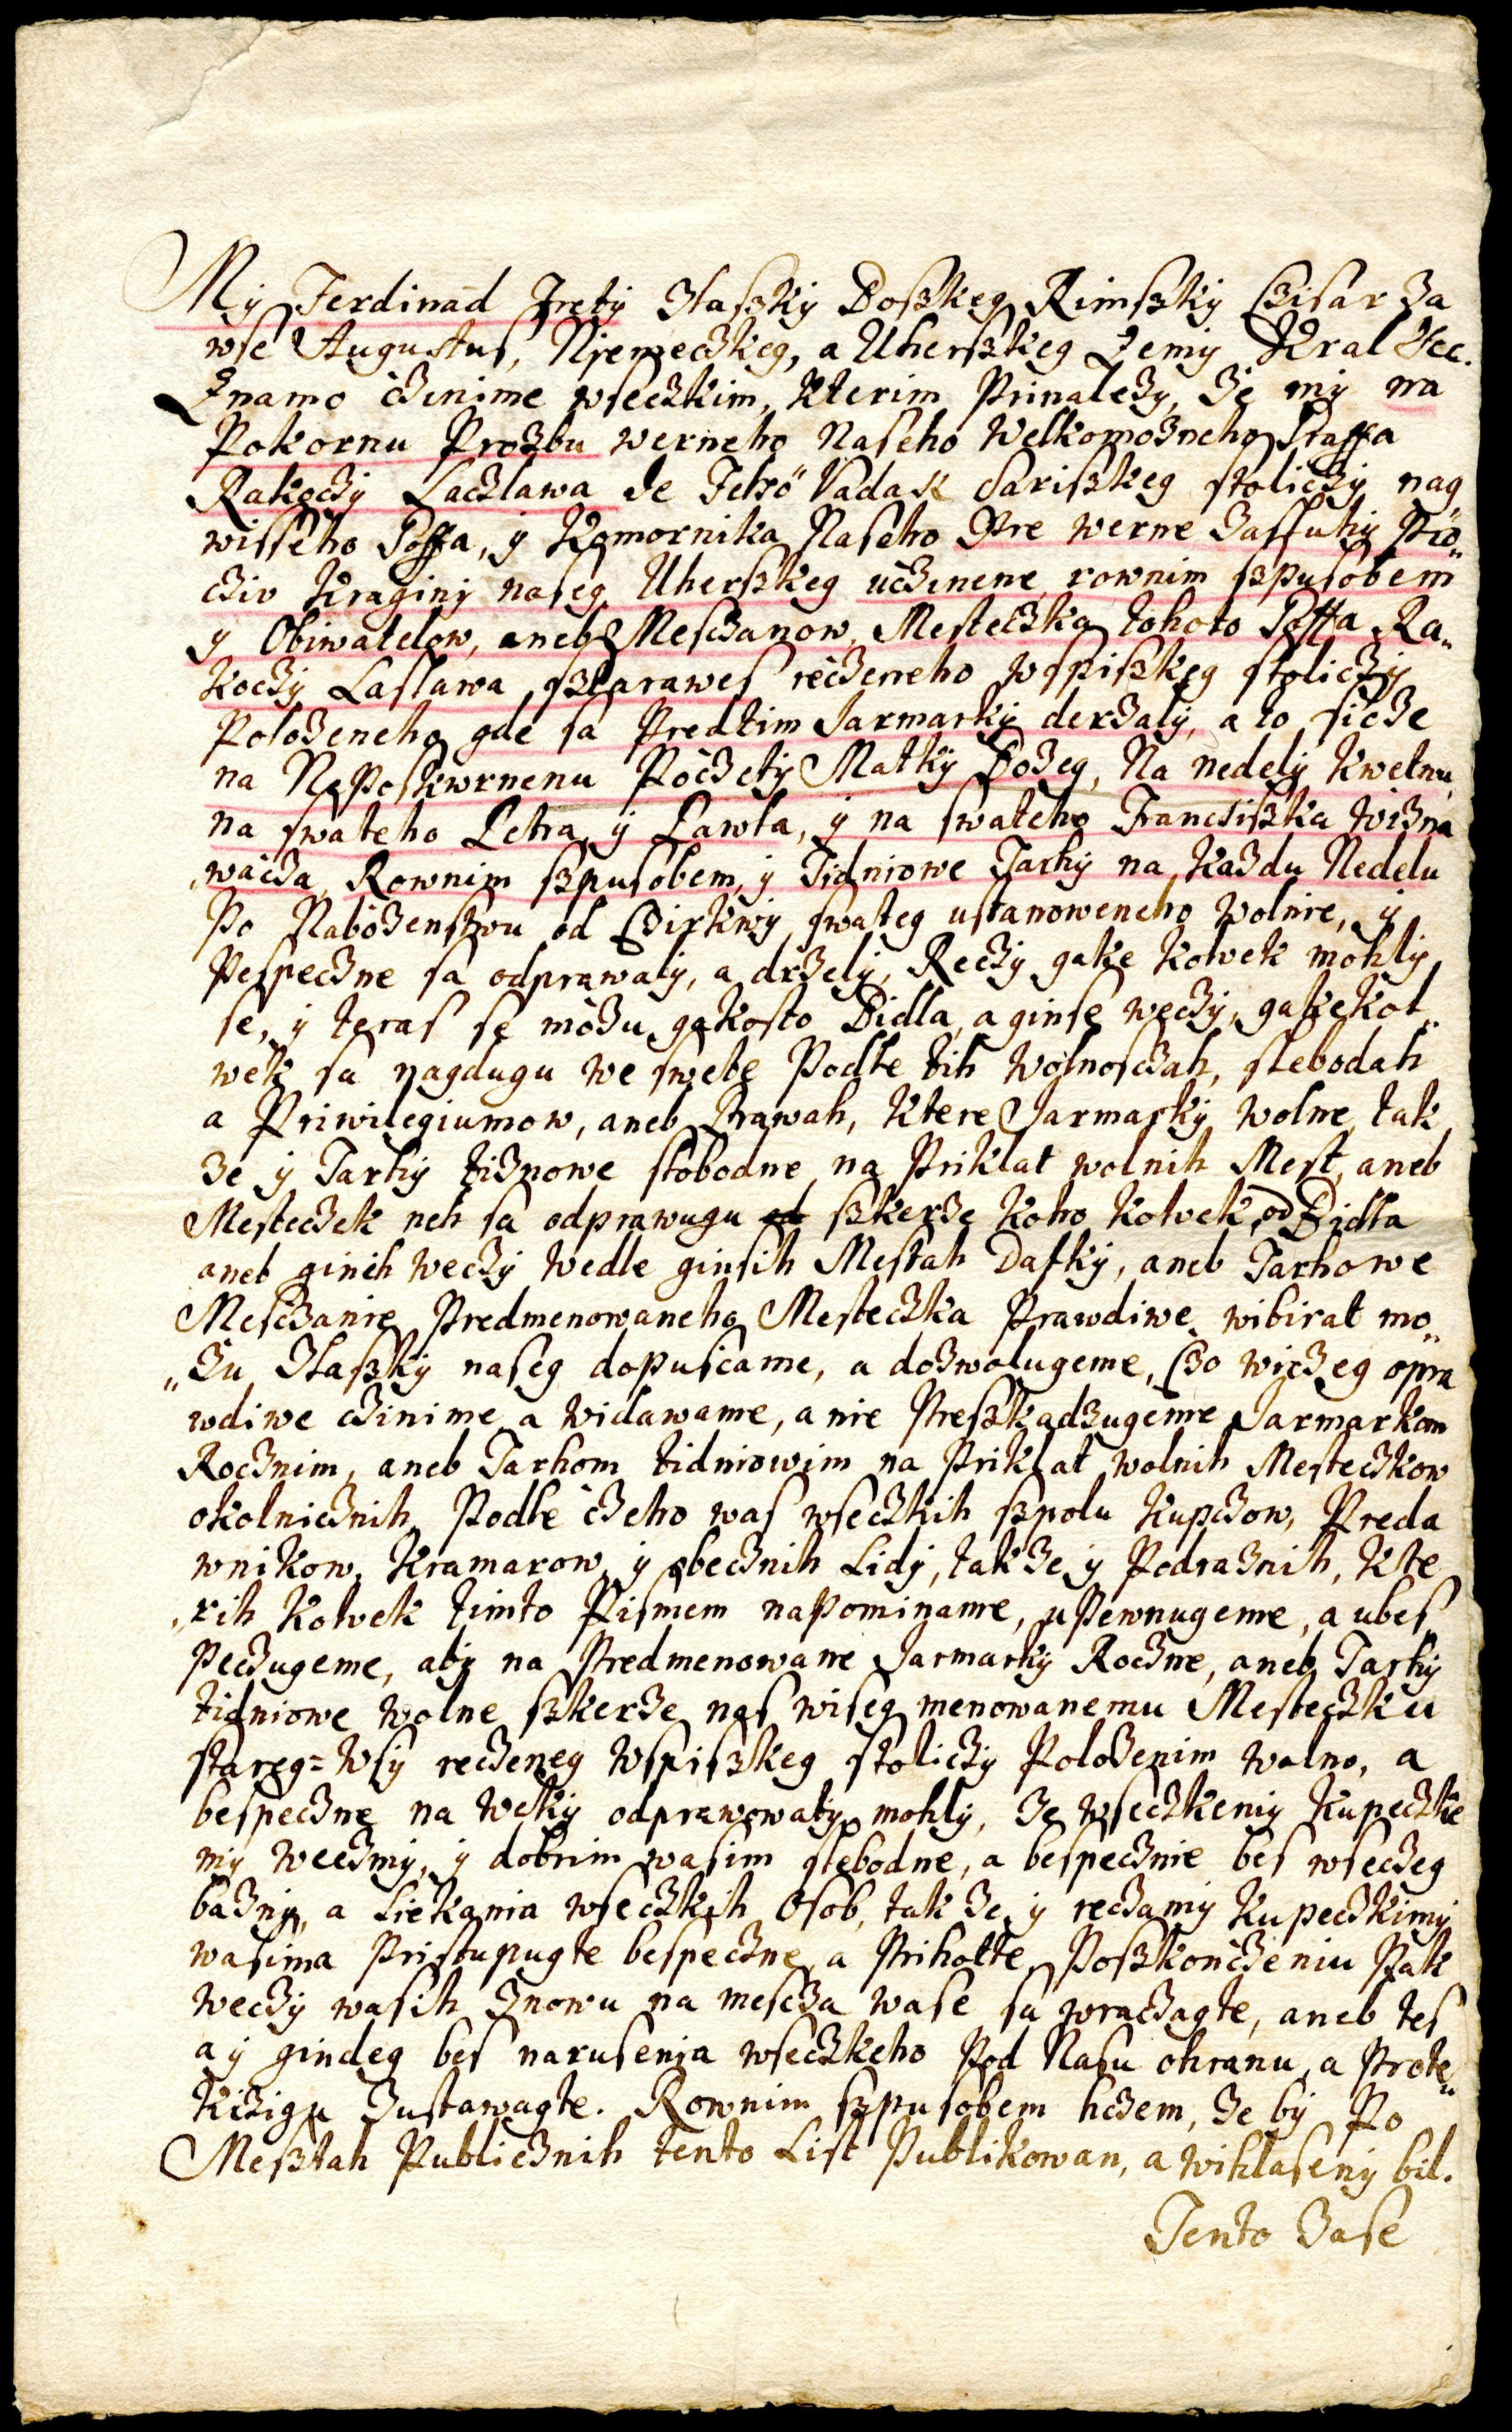 My Ferdinãd Trety Zlaszky Boszkeg Rimszky Czisar Za
wse Augustus, Njemeczkeg, a Uherszkeg Zemy Kral &c.
Znamo cžinime wseczkim, kterim Prinalezy, že my na
Pokornu Prozbu werneho Naseho Welkomozneho Graffa
Rakoczy Laczlawa de Felső Vadasz Sariszkeg stoliczy nag
wisseho Goffa, y Komornika Naseho Pre werne Zassuhy Pro„
cziv Kraginy naseg Uherszkeg učzinene, rownim szpusobem
y Obiwatelow, aneb Mesczanow, Mesteczka tohoto Goffa Ra„
koczy Laslawa, sztarawes reczeneho w spiszkeg stoliczy
Polozeneho gde sa Predtim Jarmarky derzaly, a to sicze
na NePoskwrnenu Poczety Matky Bozeg, Na nedely kwetnu,
na swateho Petra y Pawla, y na swateho Francsiszka wizna
„wacza, Rownim szpusobem, y Tidniowe Tarhy na kazdu Nedelu
Po Nabozenstwu od Czirkwy swateg ustanoweneho wolnie, y
Pespeczne sa odprawaly, a drzely, Reczy gake kolwek mohly
se, y teras se możu gakosto Bidla, a ginse weczy, gakekol„
wek sa nagdugu we swete Podle tih wolnosczah, slebodah
a Priwilegiumow, aneb Prawah, ktere Jarmarky wolne, tak
ze y Tarhy tiznowe slobodne na Priklat wolnih Mest, aneb
Mesteczek neh sa odprawugu od szkerze koho kolwek, od Bidla
aneb ginih weczy wedle ginsih Mestah Dasky, aneb Tarhowe
Mesczanie Predmenowaneho Mesteczka Prawdiwe wibirat mo„
„zu Zlaszky naseg dopuscame, a dozwolugeme, Czo wiczeg opra
wdiwe czinime a widawame, a nie Preszkadzugeme Jarmarkom
Rocznim, aneb Tarhom tidniowim na Priklat wolnih Mesteczkow
okolnicznih, Podle czeho was wseczkih szpolu kupczow, Preda
wnikow, kramarow, y obecznih Lidy, tak ze y Podraznih, kte
„rih kolwek timto Pismem napominame, upewnugeme, a ubes„
peczugeme, aby na Predmenowane Jarmarky Roczne, aneb Tarhy
tidniowe wolne szkerze nas wiseg menowanemu Mesteczku
stareg=Wsy reczeneg Wspiszkeg stoliczy Polozenim wolno, a
bespeczne na weky odprawowaty mohly, Ze wseczkemy kupeczke
my weczmy, y dobrim wasim slebodne, a bespecznie bes wseczeg
bazny, a Liekania wseczkih Osob, tak ze y reczamy kupeczkimy
wasima Pristupugte bespeczne, a Prihotte, Poszkonczeniu Pak
weczy wasih Znowu na mescza wase sa wraczagte, aneb tes
a y gindeg bes narusenia wseczkeho Pod Nasu ohranu, a Prote„
kczigu Zustawagte. Rownim szpusobem hczem, ze by Po
Mesztah Publicznih tento List Publikowan, a wihlaseny bil.
Tento Zase